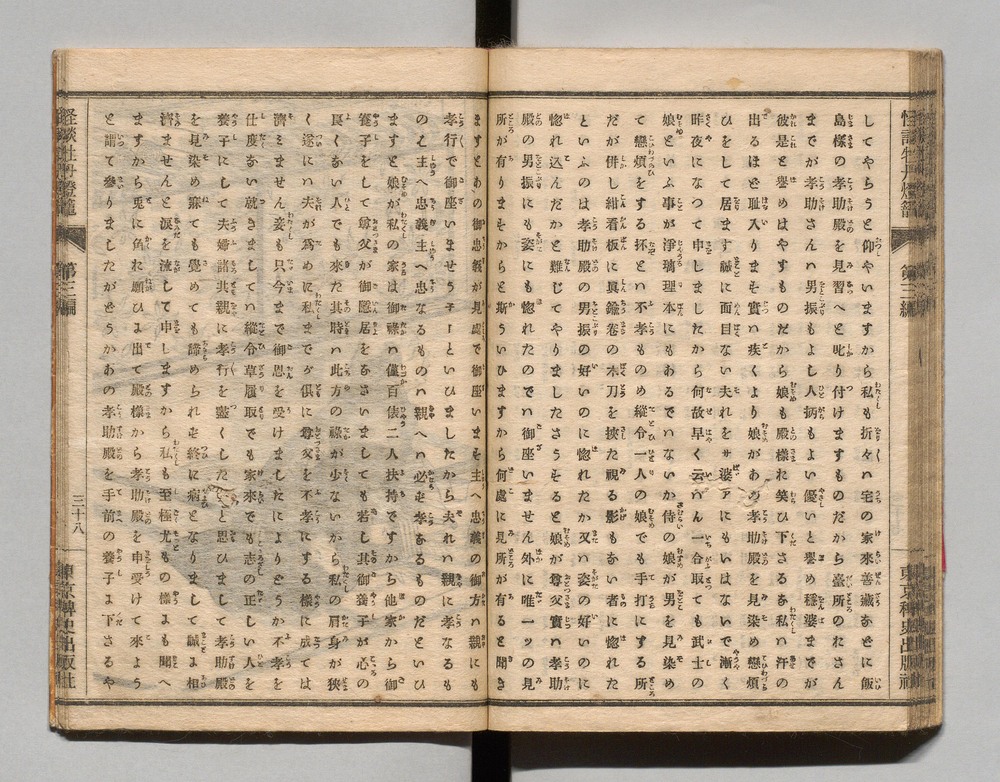 怪談牡丹燈籠　第三編　東京稗史出版社
してやらうと仰やいますから私も折々ハ宅の家來善藏なぞに飯
島樣の孝助殿を見習へと叱り付けますものだから臺所のおさん
までが孝助さんハ男振もよし人柄もよい優しいと譽め穩婆までが
彼是と譽めはやすものだから娘も殿樣お笑ひ下さるな私ハ汗の
出るほど耻入ります實ハ疾くより娘があの孝助殿を見染め戀煩
ひをして居ます誠に面目ない夫れをサ婆アにもいはないで漸く
昨夜になつて申しましたから何故早く云ハん一合取ても武士の
娘といふ事が淨瑠理本にもあるでハないか侍の娘が男を見染め
て戀煩をする抔とハ不孝ものめ縱令一人の娘でも手打にする所
だが併し紺看板に眞鍮卷の木刀を挾た視る影もない者に惚れた
といふのは孝助殿の男振の好いのに惚れたか又ハ姿の好いのに
惚れ込んだかと難じてやりましたさうすると娘が尊父實ハ孝助
殿の男振にも姿にも惚れたのでハ御座いません外に唯一ッの見
所が有りますからと斯ういひますから何處に見所が有ると聞き
ますとあの御忠義が見處で御座います主へ忠義の御方ハ親にも
孝行で御座いませう子ーといひましたから夫れハ親に孝なるも
のハ主へ忠義主へ忠なるものハ親へハ必ず孝なるものだといひ
ますと娘が私の家は御祿ハ僅百俵二人扶持ですから他家から御
養子をして尊父が御隱居をなさいましても若し其御養子が心の
良くない人でも來た其時ハ此方の祿が少ないから私の肩身が狹
く遂にハ夫が爲めに私までが倶に尊父を不孝にする樣に成ては
濟ミません妾も只今まで御恩を受けましたによりどうか不孝を
仕度ない就きましてハ縱令草履取でも家來でも志の正しい人を
養子にして夫婦諸共親に孝行を盡くしたいと思ひまして孝助殿
を見染め寐ても覺めても諦められず終に病となりまして誠に相
濟ませんと涙を流して申しますから私も至極尤もの樣にも聞へ
ますから兎に角お願ひに出て殿樣から孝助殿を申受けて來よう
と謂て參りましたがどうかあの孝助殿を手前の養子に下さるや
怪談牡丹燈籠　第三編　三十八　東京稗史出版社